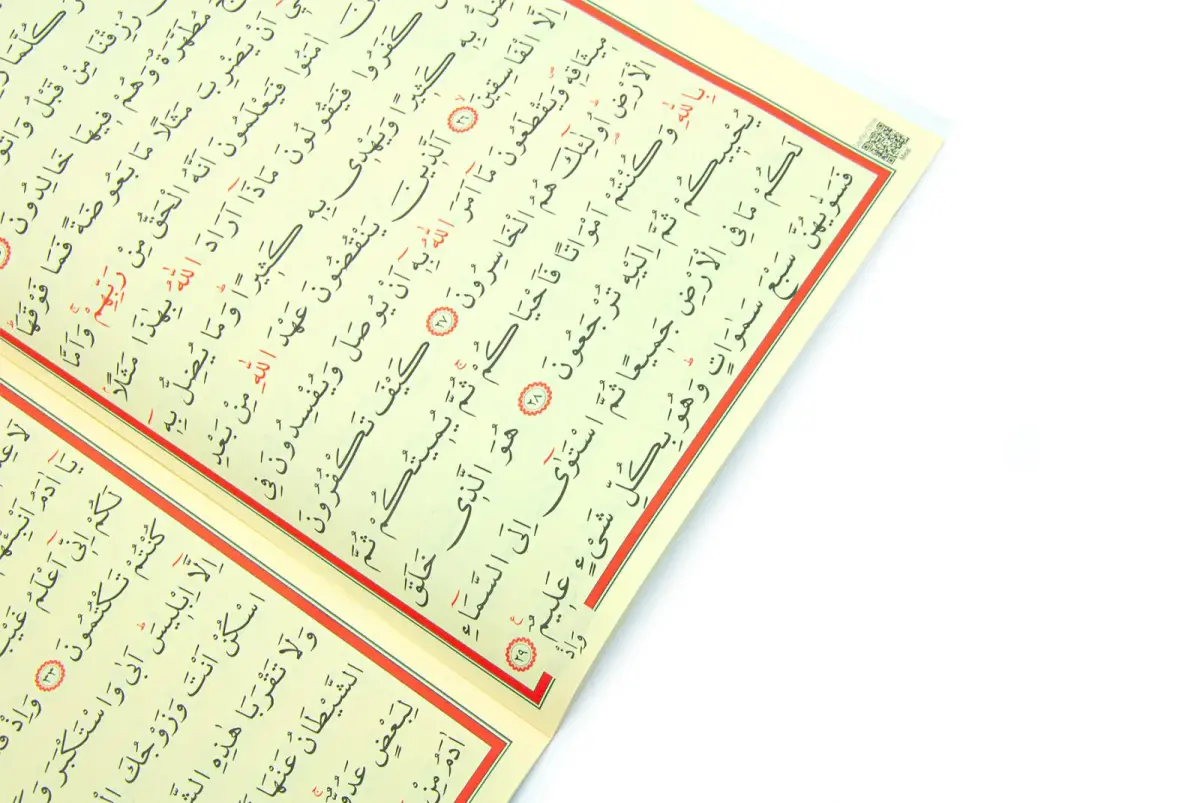 كُلَّمَا
رُزِقْنَا مِنْ قَبْلُ
مُطَهَّرَةٌ وَهُمْ فِيهَا خَالِدُونَ
اَنْ يَضْرِبَ مَثَلًا مَا بَعُوضَةً فَمَا فَوْقَهَاۜ
اٰمَنُوا فَيَعْلَمُونَ اَنَّهُ الْحَقُّ مِنْ رَبِّهِمْۚ وَاَمَّا
كَفَرُوا فَيَقُولُونَ مَاذَٓا اَرَادَ اللّٰهُ بِهٰذَا مَثَلًاۢ
بِهِ كَثِيرًا وَيَهْدِى بِهِ كَثِيرًاۜ وَمَا يُضِلُّ بِهِٓ
اِلَّا الْفَاسِقِينَۙ ٢٦ اَلَّذِينَ يَنْقُضُونَ عَهْدَ اللّٰهِ مِنْ بَعْدِ
مِيثَاقِهِۖ وَيَقْطَعُونَ مَٓا اَمَرَ اللّٰهُ بِهِٓ اَنْ يُوصَلَ وَيُفْسِدُونَ فِى
الْاَرْضِۜ اُولٰٓئِكَ هُمُ الْخَاسِرُونَ ٢٧ كَيْفَ تَكْفُرُونَ
بِاللّٰهِ وَكُنْتُمْ اَمْوَاتًا فَاَحْيَاكُمْۚ ثُمَّ يُمِيتُكُمْ ثُمَّ
يُحْيِيكُمْ ثُمَّ اِلَيْهِ تُرْجَعُونَ ٢٨ هُوَ الَّذِى خَلَقَ
لَكُمْ مَا فِى الْاَرْضِ جَمِيعًا ثُمَّ اسْتَوٰٓى اِلَى السَّمَٓاءِ
فَسَوّٰيهُنَّ سَبْعَ سَمٰوَاتٍۜ وَهُوَ بِكُلِّ شَىْءٍ عَلِيمٌ۟ ٢٩
وَاِذْ
لَا
يَٓا اٰدَمُ
لَكُمْ اِنِّٓى اَعْلَمُ غَيْبَ
كُنْتُمْ تَكْتُمُونَ ٣٣ وَاِذْ
اِلَّٓا اِبْلِيسَۜ اَبٰى وَاسْتَكْبَرَ
اسْكُنْ اَنْتَ وَزَوْجُكَ
وَلَا تَقْرَبَا هٰذِهِ
الشَّيْطَانُ عَنْهَا
لِبَعْضٍ عَدُوٌّۚ
اٰدَمُ مِنْ